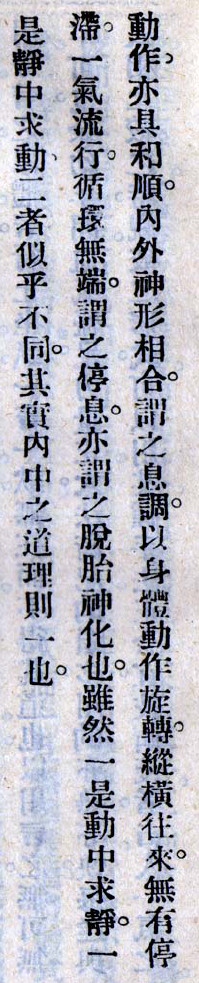 動作、亦具和順。內外神形相合。謂之息調。以身體動作旋轉。縱橫往來。無有停
滯。一氣流行。循環無端。謂之停息。亦謂之脫胎神化也。雖然一是動中求靜。一
是靜中求動、二者似乎不同。其實內中之道理則一也。